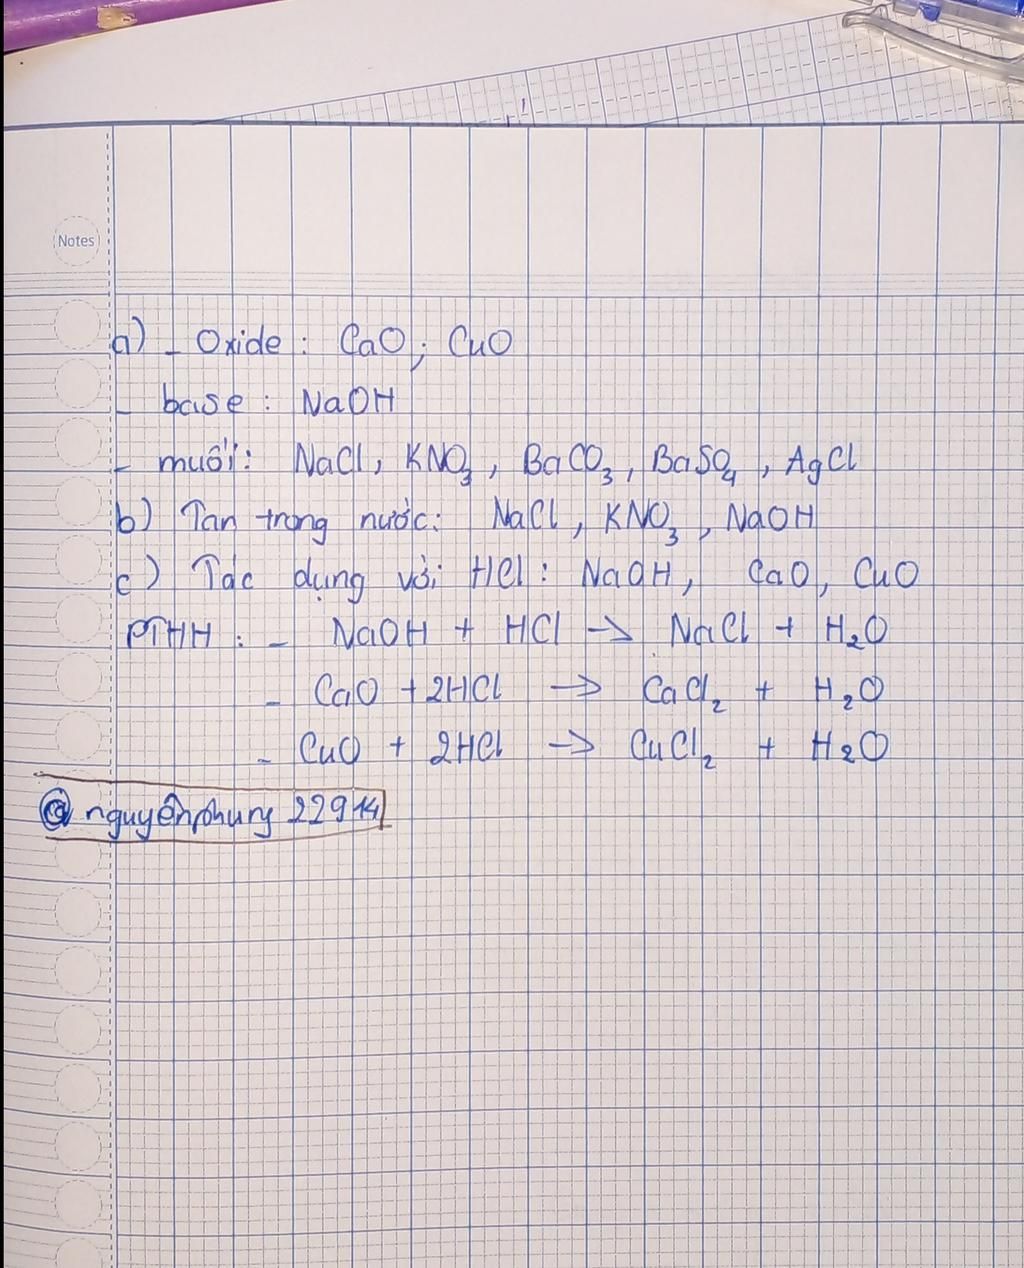 Notes
a) - Oxide : CaO ; CuO
- base : NaOH
- muối : NaCl, KNO₃, BaCO₃, BaSO₄, AgCl
b) Tan trong nước : NaCl, KNO₃, NaOH
c) Tác dụng với HCl : NaOH, CaO, CuO
PTHH : - NaOH + HCl → NaCl + H₂O
- CaO + 2HCl → CaCl₂ + H₂O
- CuO + 2HCl → CuCl₂ + H₂O
@ nguyênphung 22914